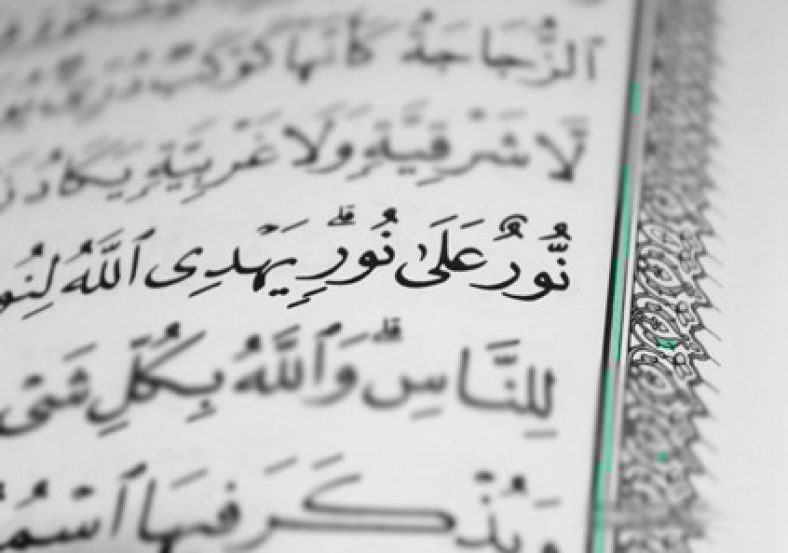 ٱلزُّجَاجَةُ كَأَنَّهَا كَوْكَبٌ دُرِّيٌّ
لَّا شَرْقِيَّةٍ وَلَا غَرْبِيَّةٍ يَكَادُ
نُّورٌ عَلَىٰ نُورٍۗ يَهْدِى ٱللَّهُ
لِلنَّاسِۗ وَٱللَّهُ بِكُلِّ شَىْ
وَيُذْكَرَ فِيهَا ٱسْمُ